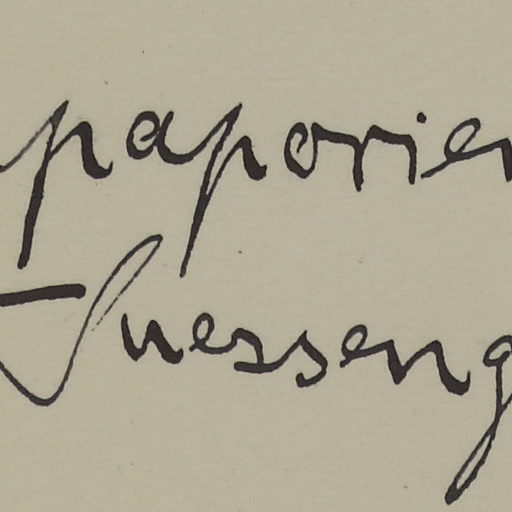 paporien
Suesseng